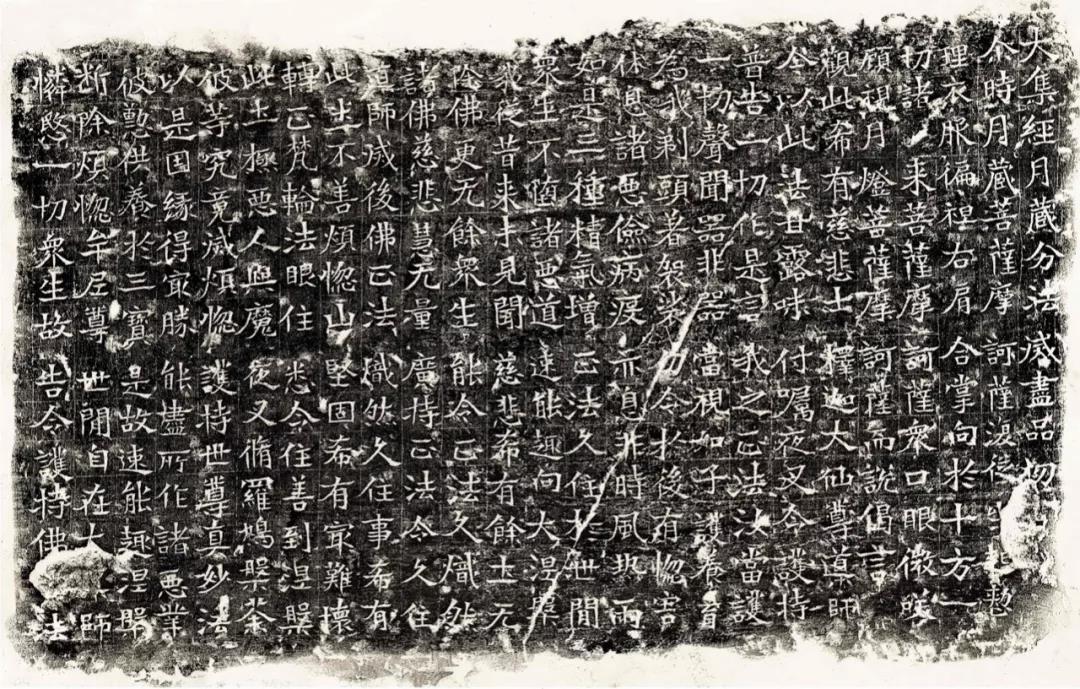 大集經月藏分法滅盡品初
尒時月藏菩薩摩訶薩復從坐起整
理衣服偏袒右肩合掌向於十方一
切諸来菩薩摩訶薩衆口眼微𥬇
顧視月燈菩薩摩訶薩而說偈言
觀此希有慈悲士釋迦大仙尊導師
今以此法甘露味付囑夜叉令護持
普告一切作是言我之正法汝當護
一切聲聞器非器當視如子護養育
為我剃頭著袈裟勿令於後有惚害
休息諸惡儉病疫亦息非時風熱雨
如是三種精氣增正法久住於世閒
衆生不墮諸惡道速能趣向大涅槃
我從昔来未見聞慈悲希有餘土无
除佛更无餘衆生能令正法久熾然
諸佛慈悲慧无量廣持正法令久住
真師滅後佛正法熾然久住事希有
此土不善煩惚山堅固希有冣難壞
轉正梵輪法眼住悉令住善到涅槃
此土極惡人與魔夜叉脩羅鳩槃荼
彼等究竟滅煩惚護持世尊真妙法
以是因緣得冣勝能盡所作諸惡業
彼懃供養於三寶是故速能趣涅槃
断除煩惚牟尼尊世閒自在大師
憐愍一切衆生故告令護持佛法